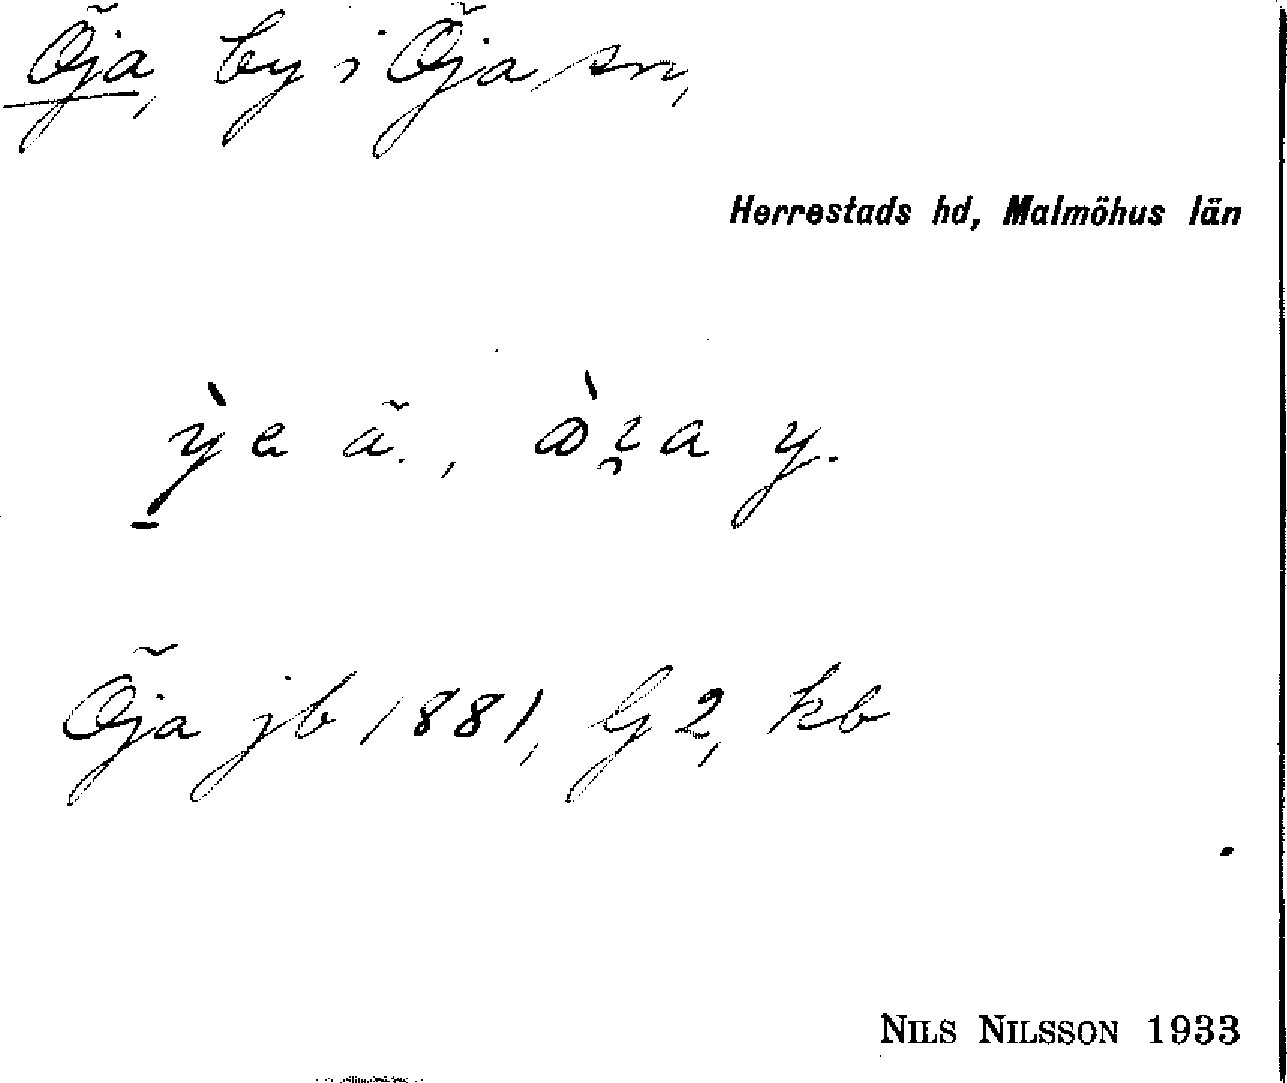 Öja, by i Öja sn,
Herrestads hd, Malmöhus län
Öja jb 1881, G 2, kb
NILS NILSSON 1933